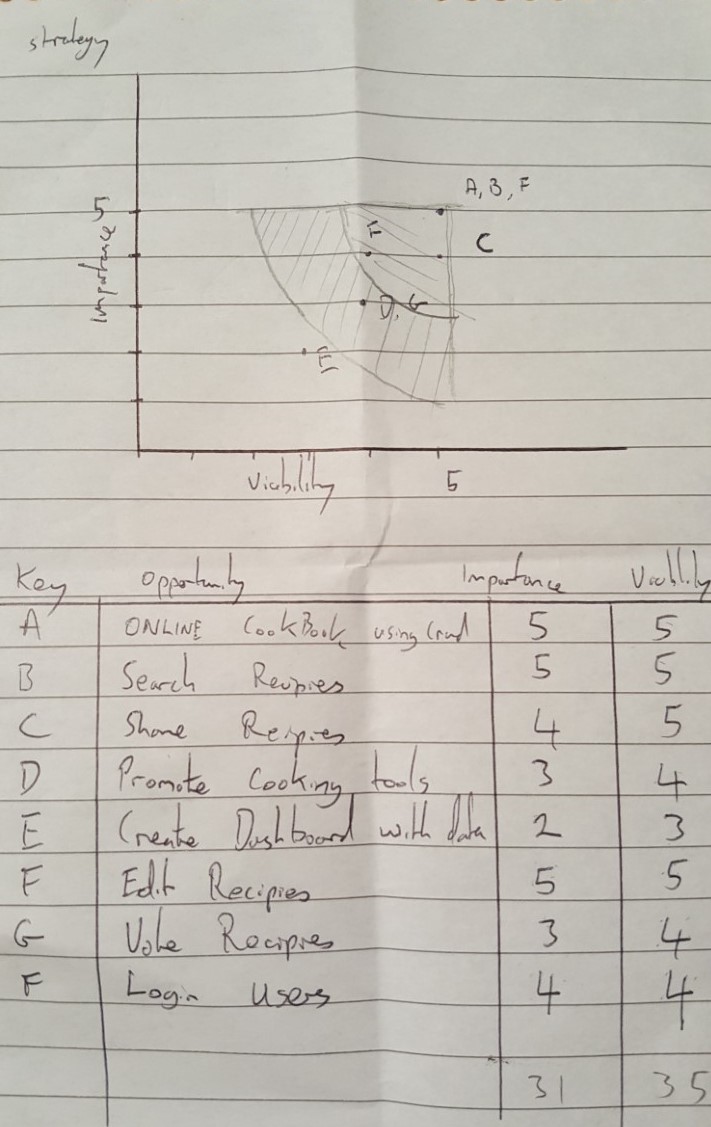 strategy
A, B, F
5
F
C
Importance
D, G
E
Viability
5
Key Opportunity Importance Viability
A ONLINE CookBook using Crud 5 5
B Search Recipies 5 5
C Share Recipies 4 5
D Promote Cooking tools 3 4
E Create Dashboard with data 2 3
F Edit Recipies 5 5
G Vote Recipies 3 4
F Login Users 4 4
31 35